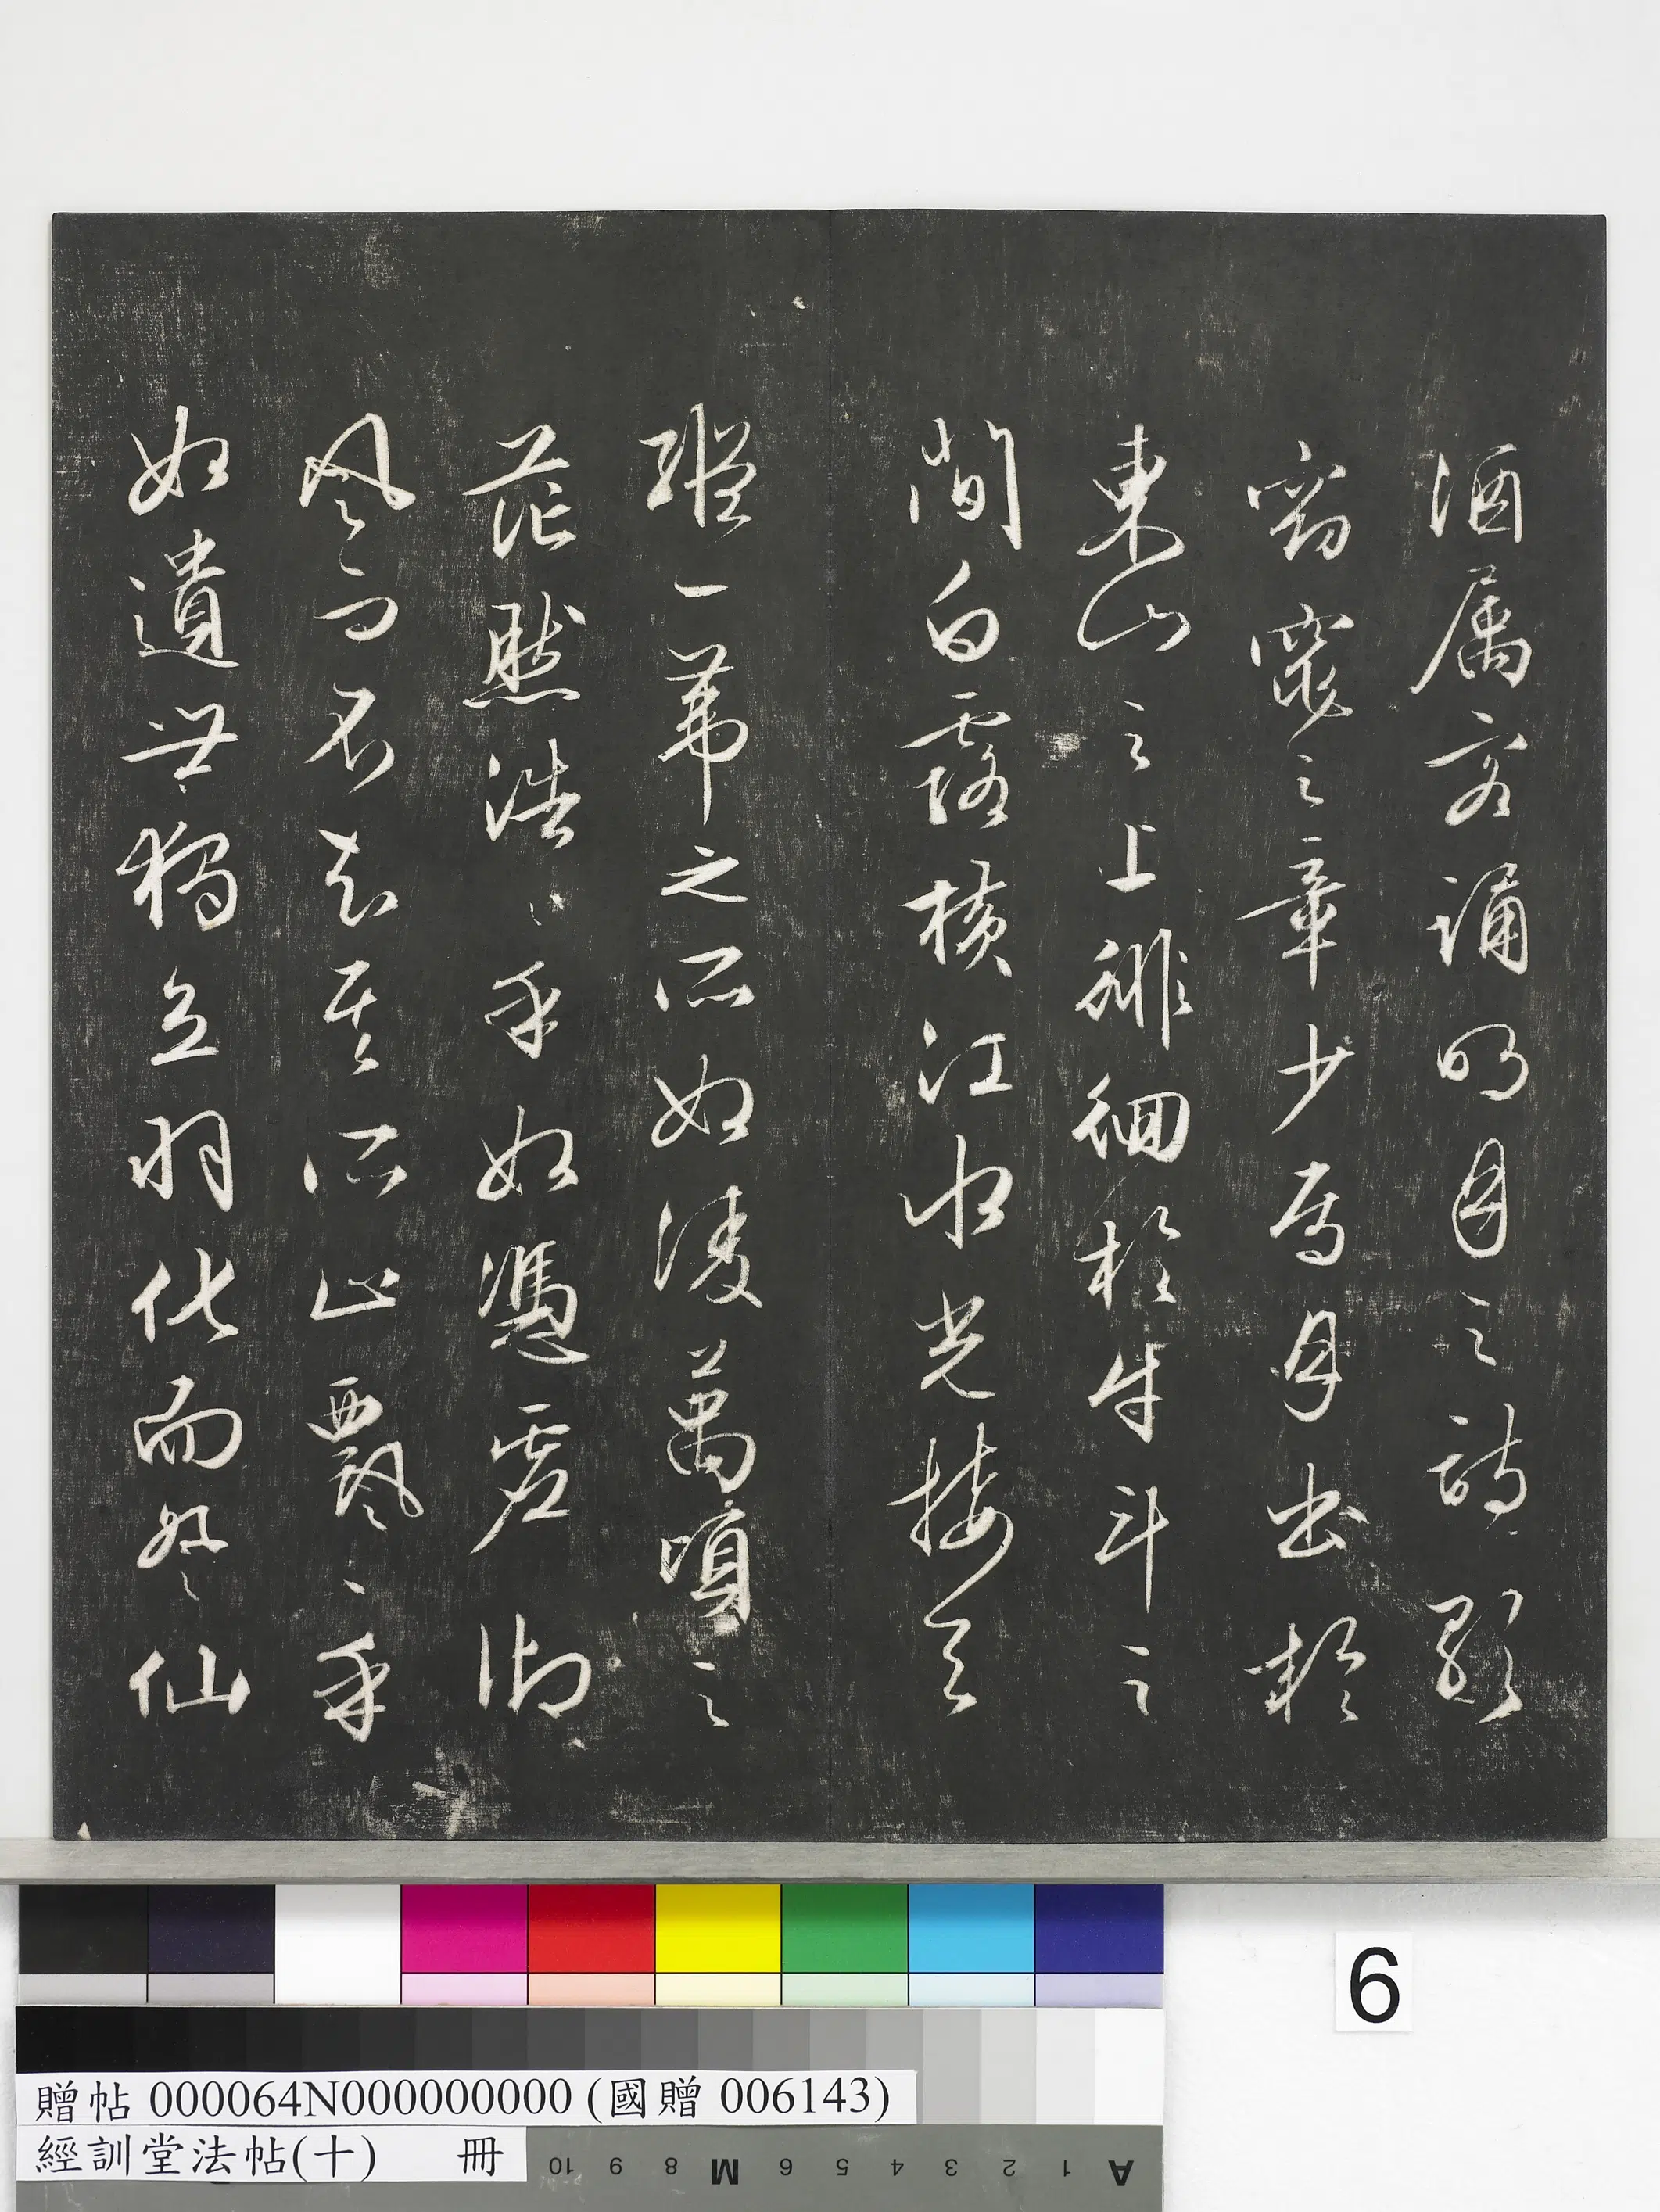 酒属客誦明月之詩歌
窈窕之章少焉月出於
東山之上徘徊於斗牛之
間白露横江水光接天
縱一葦之所如凌萬頃之
茫然浩〻乎如憑虚御
風而不知其所止飄〻乎
如遺世獨立羽化而登仙
6
贈帖 000064N000000000 (國贈 006143)
經訓堂法帖(十) 冊
10 9 8 M 6 5 4 3 2 1 A